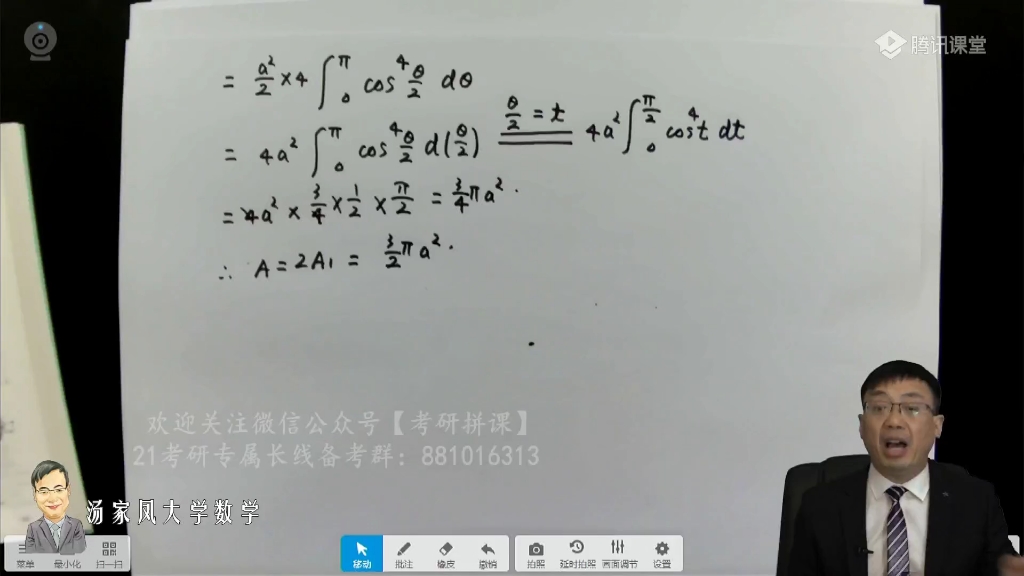 腾讯课堂
= a²/2 ×4 ∫₀^π cos⁴ θ/2 dθ
= 4a² ∫₀^π cos⁴ θ/2 d(θ/2) θ/2 = t 4a² ∫₀^(π/2) cos⁴t dt
= 4a² × 3/4 × 1/2 × π/2 = 3/4 πa².
∴ A = 2A₁ = 3/2 πa².
欢迎关注微信公众号【考研拼课】
21考研专属长线备考群：881016313
汤家凤大学数学
菜单 最小化 扫一扫 移动 批注 橡皮 撤销 拍照 延时拍照 画面调节 设置